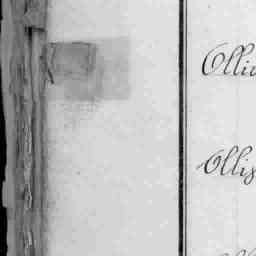 Olli
Ollis